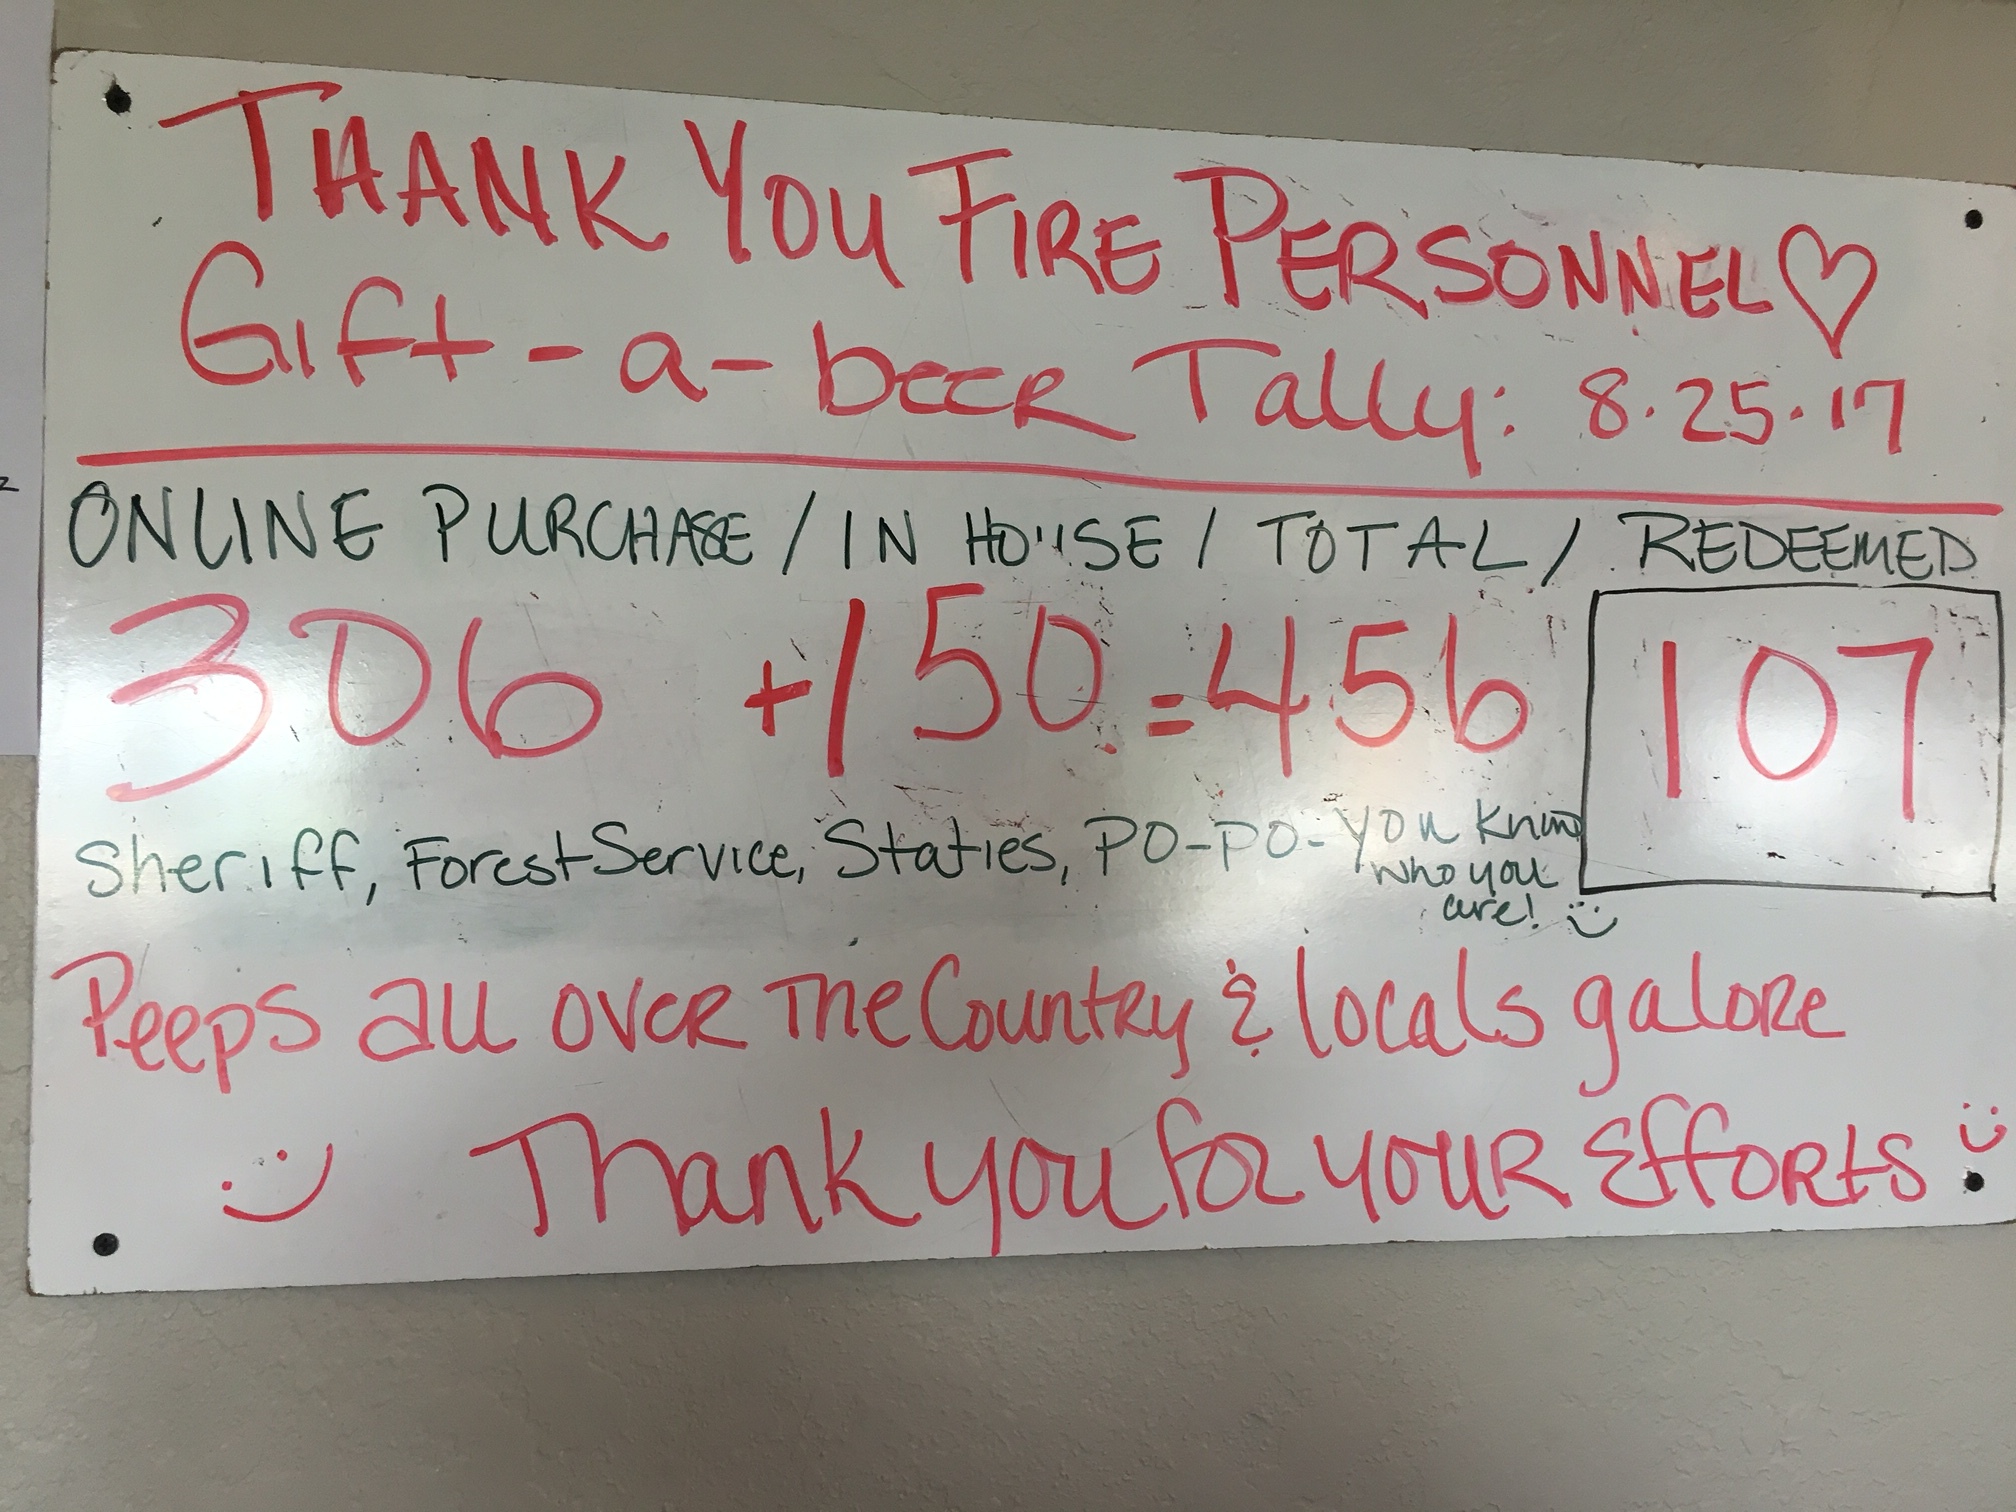 THANK YOU FIRE PERSONNEL ♡
Gift-a-beer Tally: 8.25.17
ONLINE PURCHASE / IN HOUSE / TOTAL / REDEEMED
306 +150 = 456 107
Sheriff, Forest Service, Staties, PO-PO-You know
who you
are! :)
Peeps all over the Country & locals galore
:) Thank you for your Efforts :)